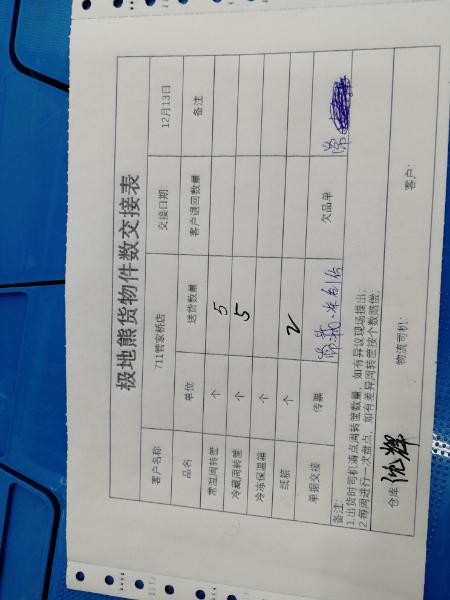 极地熊货物件数交接表
客户名称 711管家桥店 交接日期 12月13日
品名 单位 送货数量 客户退回数量 备注
常温周转筐 个 5
冷藏周转筐 个 5
冷冻保温箱 个
纸箱 个 2
单据交接 传票 欠品单
备注:
1.出货时司机清点周转筐数量,如有异议现场提出;
2.每周进行一次盘点,如有差异周转筐按个数赔偿;
仓库: 物流司机: 客户: